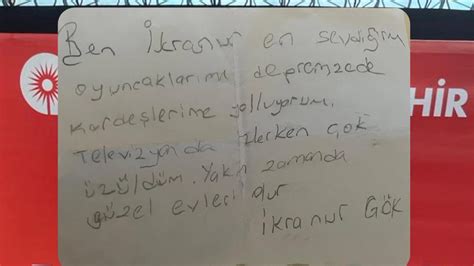 Ben İkranur en sevdiğim
oyuncaklarımı depremzede
kardeşlerime yolluyorum.
Televizyonda izlerken çok
üzüldüm. Yakın zamanda
güzel evleri olur
İkranur GÖK
HİR